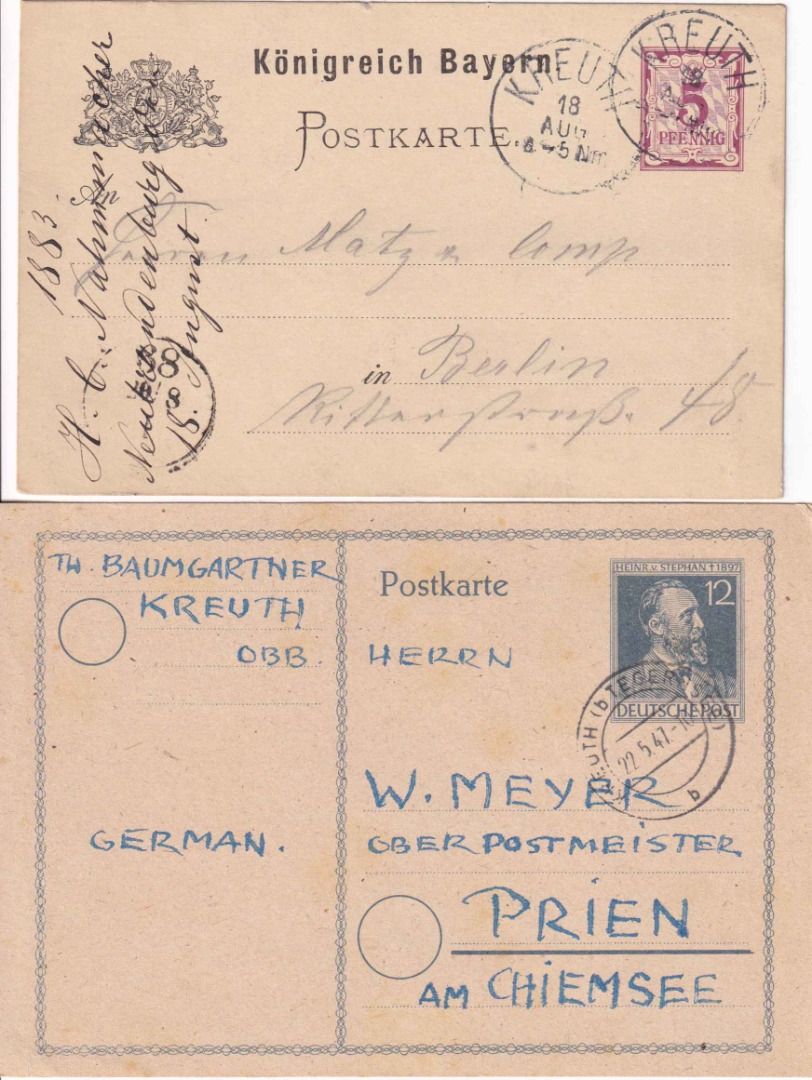 Königreich Bayern
POSTKARTE.
5
PFENNIG
KREUTH
18
AUG
4-5 Nm
KREUTH
18
AU
An
Herrn Matz & Comp
in Berlin
Ritterstraße 48
1883.
H. C. Nahmmacher
Neubrandenburg
18. August
TH. BAUMGARTNER
KREUTH
OBB.
GERMAN.
Postkarte
HEINR. v. STEPHAN † 1897
12
DEUTSCHE POST
KREUTH (b TEGERN
22.5.47.-10
b
HERRN
W. MEYER
OBERPOSTMEISTER
PRIEN
AM CHIEMSEE